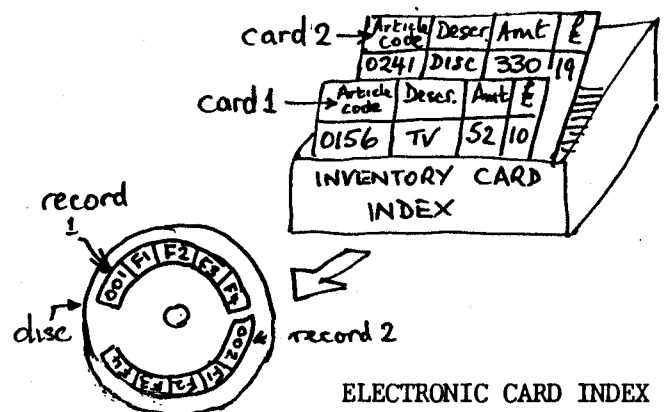 card 2
Article code Descr. Amt £
0241 DISC 330 19
card 1
Article code Descr. Amt £
0156 TV 52 10
INVENTORY CARD
INDEX
record
1
001 F1 F2 F3 F4
disc
record 2
002 F1 F2 F3 F4
ELECTRONIC CARD INDEX